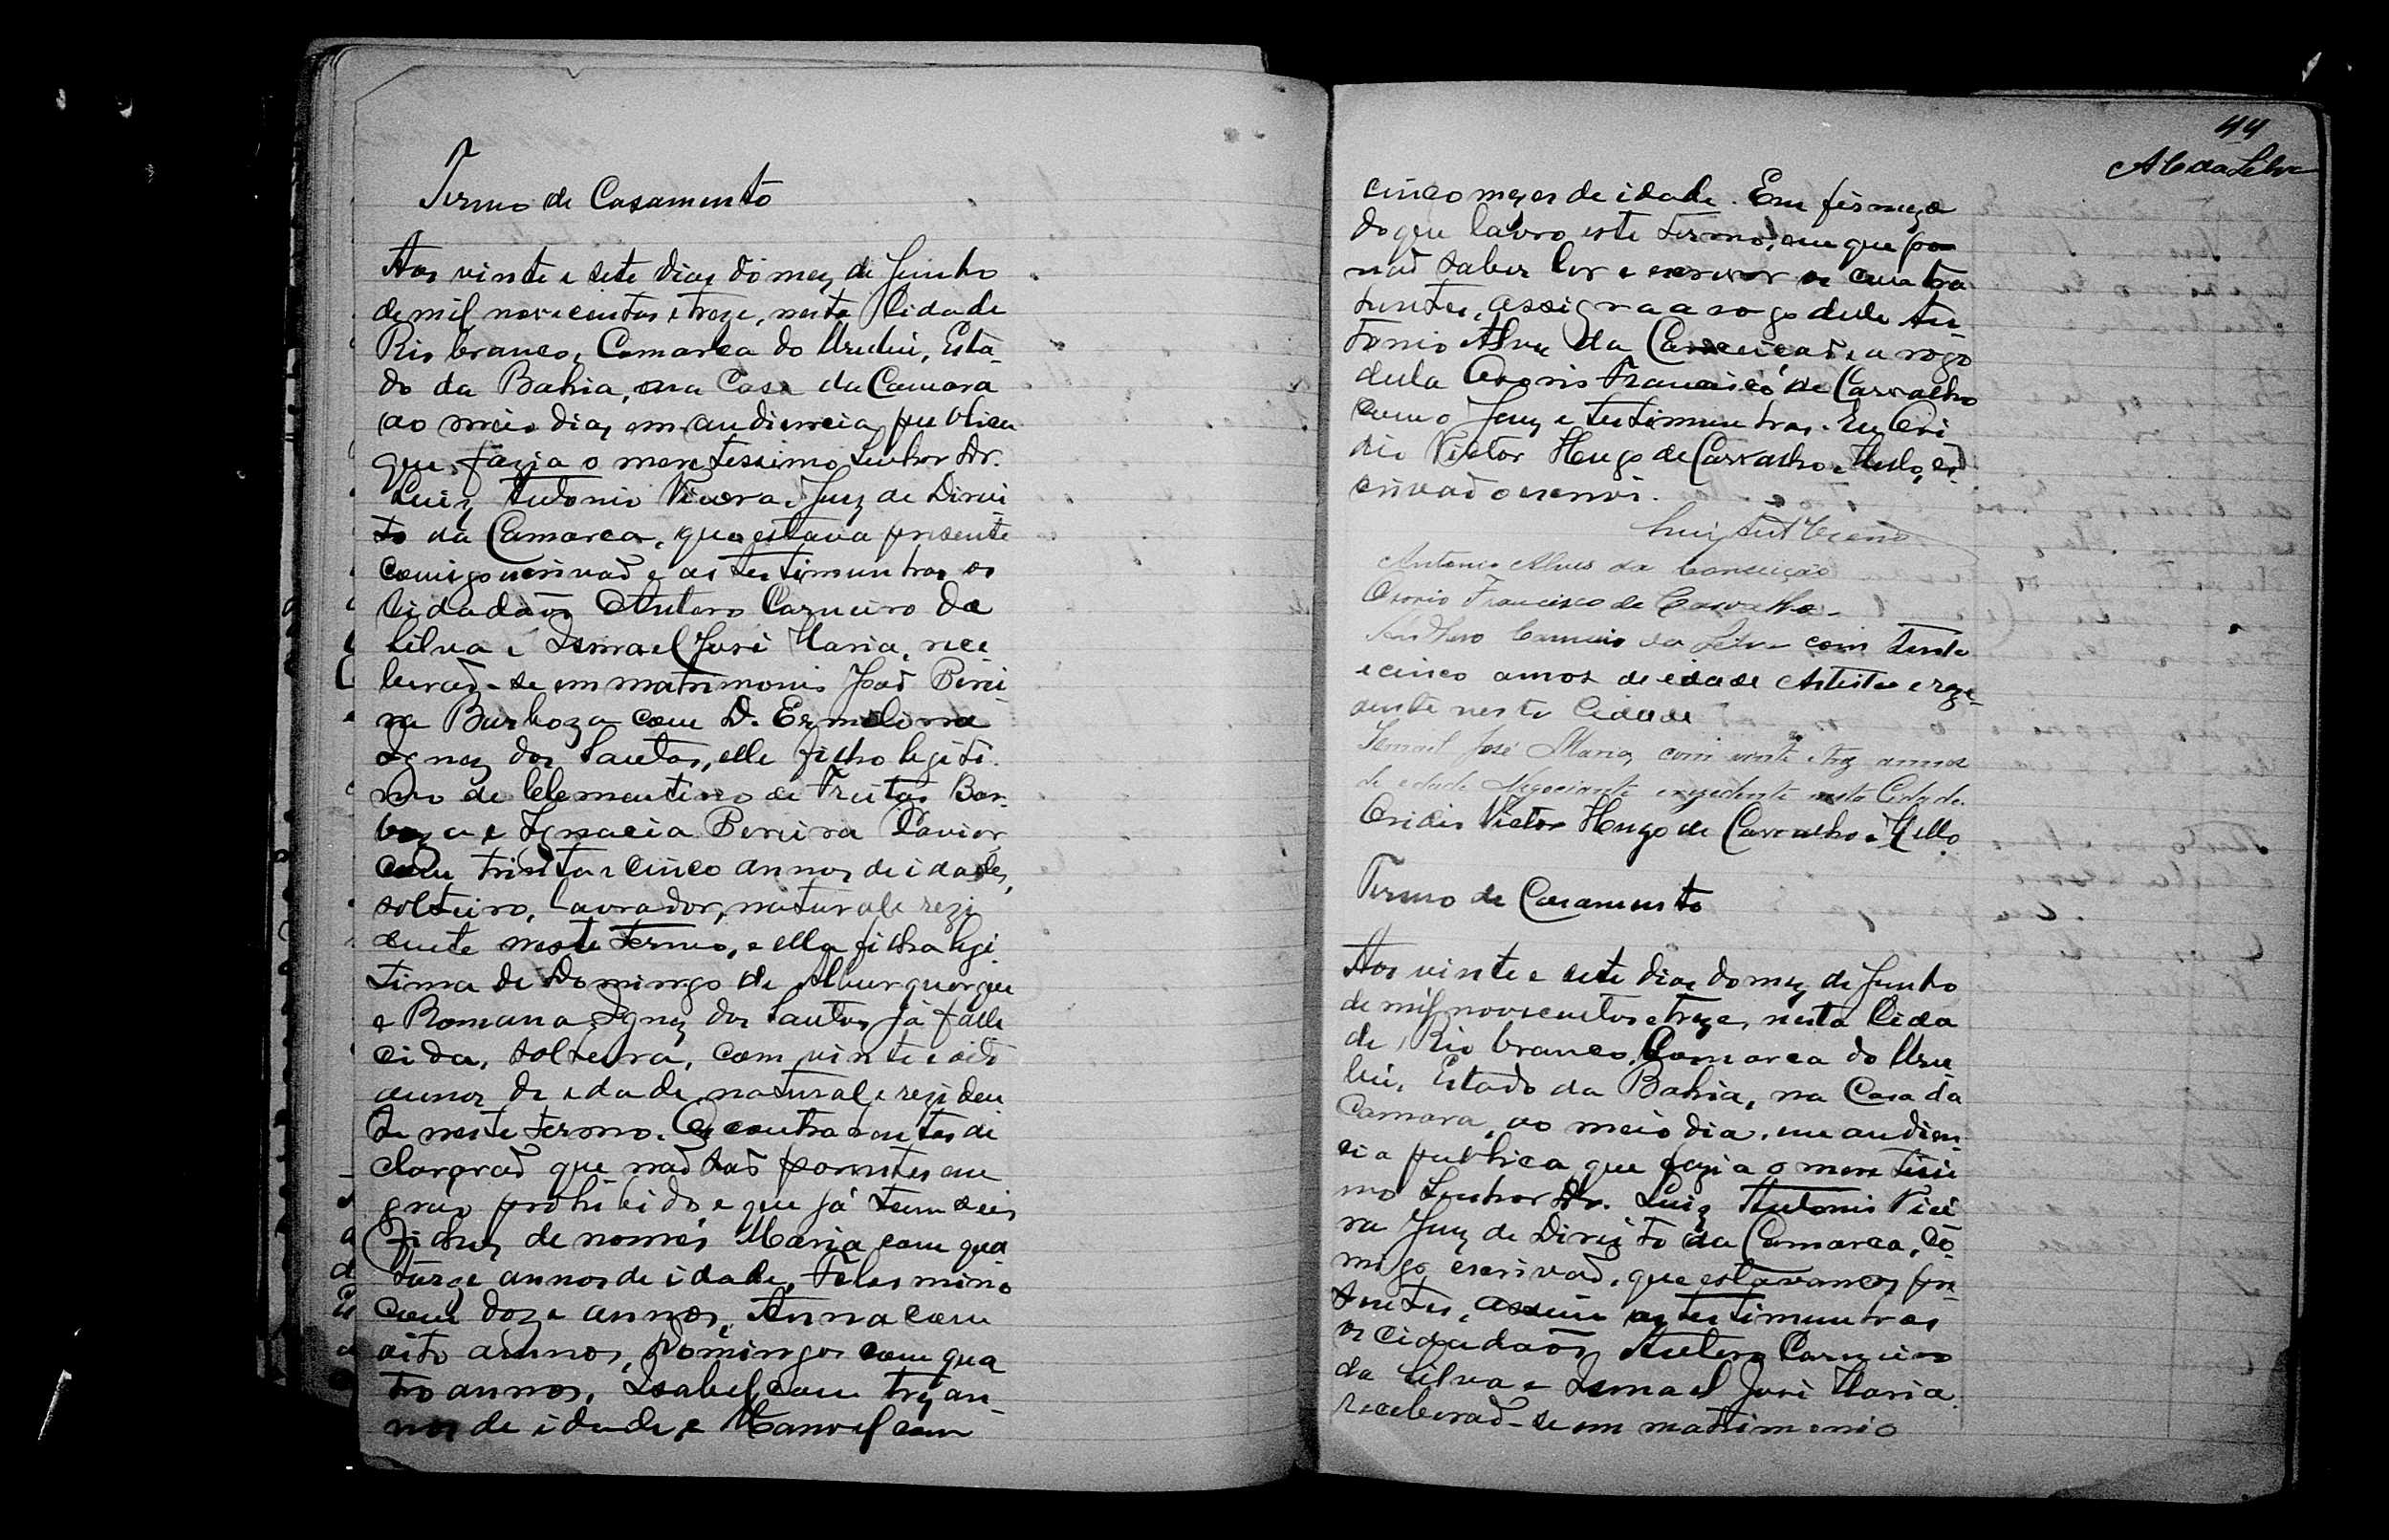 Termo de Casamento
Aos vinte e sete dias do mez de Junho
de mil novecentos e treze, nesta Cidade
Rio branco, Comarca do Urubú, Esta-
do da Bahia, na Casa da Camara
ao meio dia, em audiencia publica
que fazia o meretissimo Senhor Dr.
Luiz Antonio Vieira, Juiz de Direi
to da Comarca, que estava presente
comigo escrivaõ e as testimunhas os
Cidadaõs Antero Carneiro da
Silva e Ismael José Maria, rece
beraõ-se em matrimonio Joaõ Perei
ra Barboza com D. Ermelina
Ignez dos Santos, elle filho legiti-
mo de Clementino de Freitas Bar-
boza e Ignacia Pereira
com trinta e cinco annos de idade,
solteiro, lavrador, natural e rezi
dente neste termo, e ella filha legi
tima de Domingo de Alburquerque
e Romana Ignez dos Santos já falle
cida, solteira, com vinte e oito
annos de edade natural e reziden
te neste termo. Os contraentes de
clararaõ que naõ saõ parentes em
grao prohibido e que já tem seis
filhos de nomes Maria com qua
torze annos de idade, Felismina
com doze annos, Anna com
oito annos, Domingos com qua
tro annos, Isabel com trez an-
nos de idade, e Manoel com
44
A C da Silva
cinco mezes de idade. Em firmeza
do que lavro este termo, em que por
naõ saber ler e escrever os contra
tentes, assigna a rogo delle An-
tonio Alves da Conceiçaõ, e a rogo
della Osorio Francisco de Carvalho
com o Juiz e testimunhas. Eu Ovi
dio Victor Hugo de Carvalho e Mello, es
crivaõ o escrevi.
Luiz Antº Vieira
Antonio Alves da Conceiçaõ
Osorio Francisco de Carvalho
Anthero Carneiro da Silva com trinta
e cinco annos de edade Artista e rezi-
dente nesta Cidade
Ismael José Maria, com vinte e trez annos
de edade Negociante e rezidente nesta Cidade.
Ovidio Victor Hugo de Carvalho e Mello
Termo de Casamento
Aos vinte e sete dias do mez de Junho
de mil novecentos e treze, nesta Cida
de, Rio branco, Comarca do Uru
bú, Estado da Bahia, na Casa da
Camara, ao meio dia, em audien-
cia publica que fazia o meretissi
mo Senhor Dr. Luiz Antonio Viei
ra Juiz de Direito da Comarca, co-
migo escrivaõ, que estavamos pre-
sentes, assim as testimunhas
os cidadaõs Antero Carneiro
da Silva e Ismael José Maria.
receberaõ-se em matrimonio